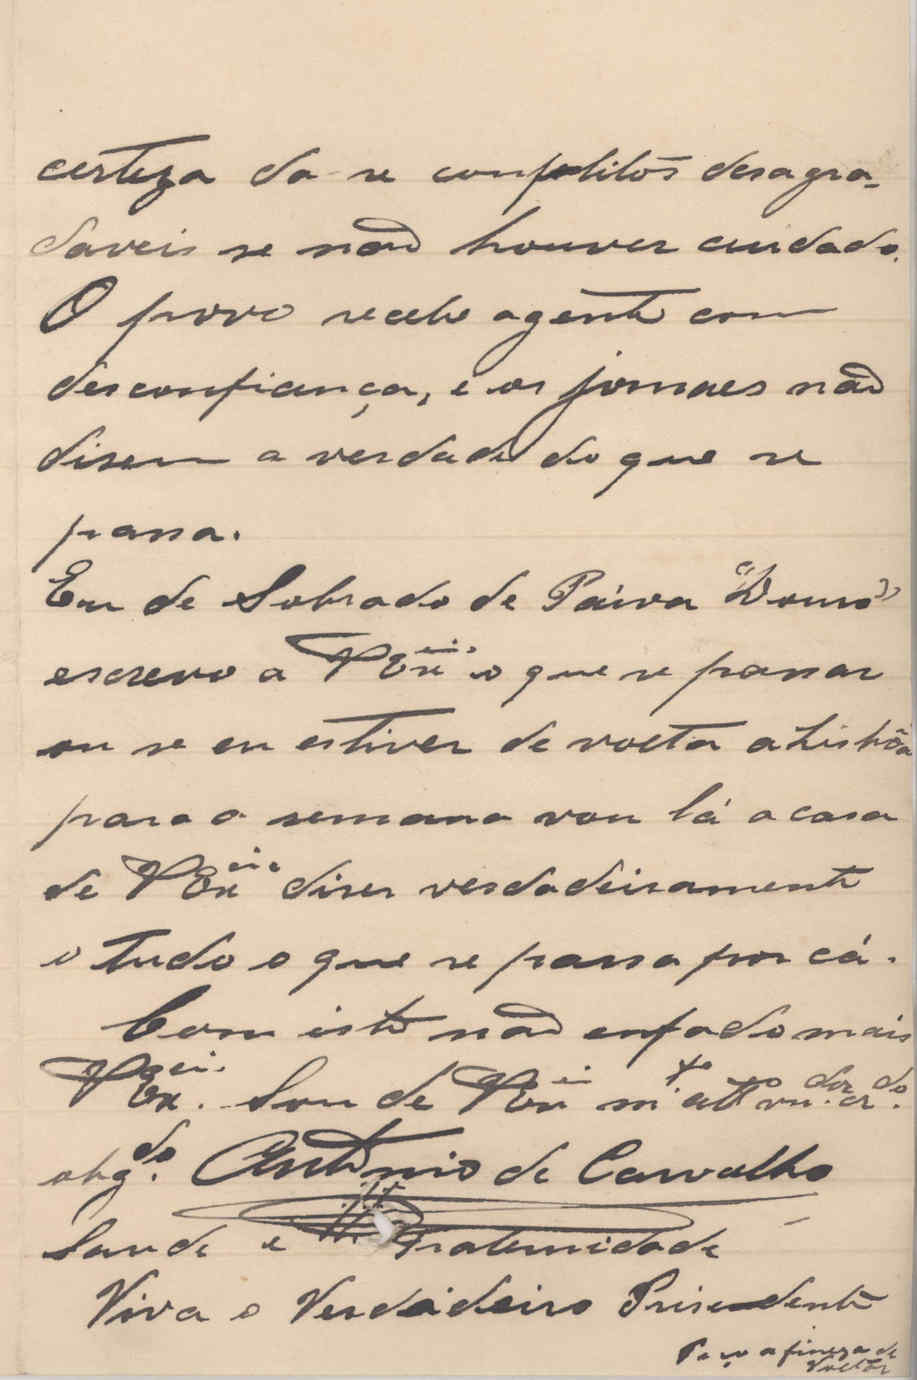 certeza da-se conflitos desagra-
daveis se não houver cuidado.
O povo recebe agente com
desconfiança, e os jornaes não
disem a verdade do que se
passa.
Eu de Sobrado de Paiva "Douro"
escrevo a V Exciª o que se passar
ou se eu estiver de volta a Lisbôa
para a semana vou lá a casa
de V Exciª diser verdadeiramente
o tudo o que se passa por cá.
Com isto não enfado mais
V Exciª. Sou de V Exci m.to att.o vn.dor cr.do
obg.do António de Carvalho
Saude e Fraternidade
Viva o Verdadeiro Presedente
Faço a fineza de
voltar